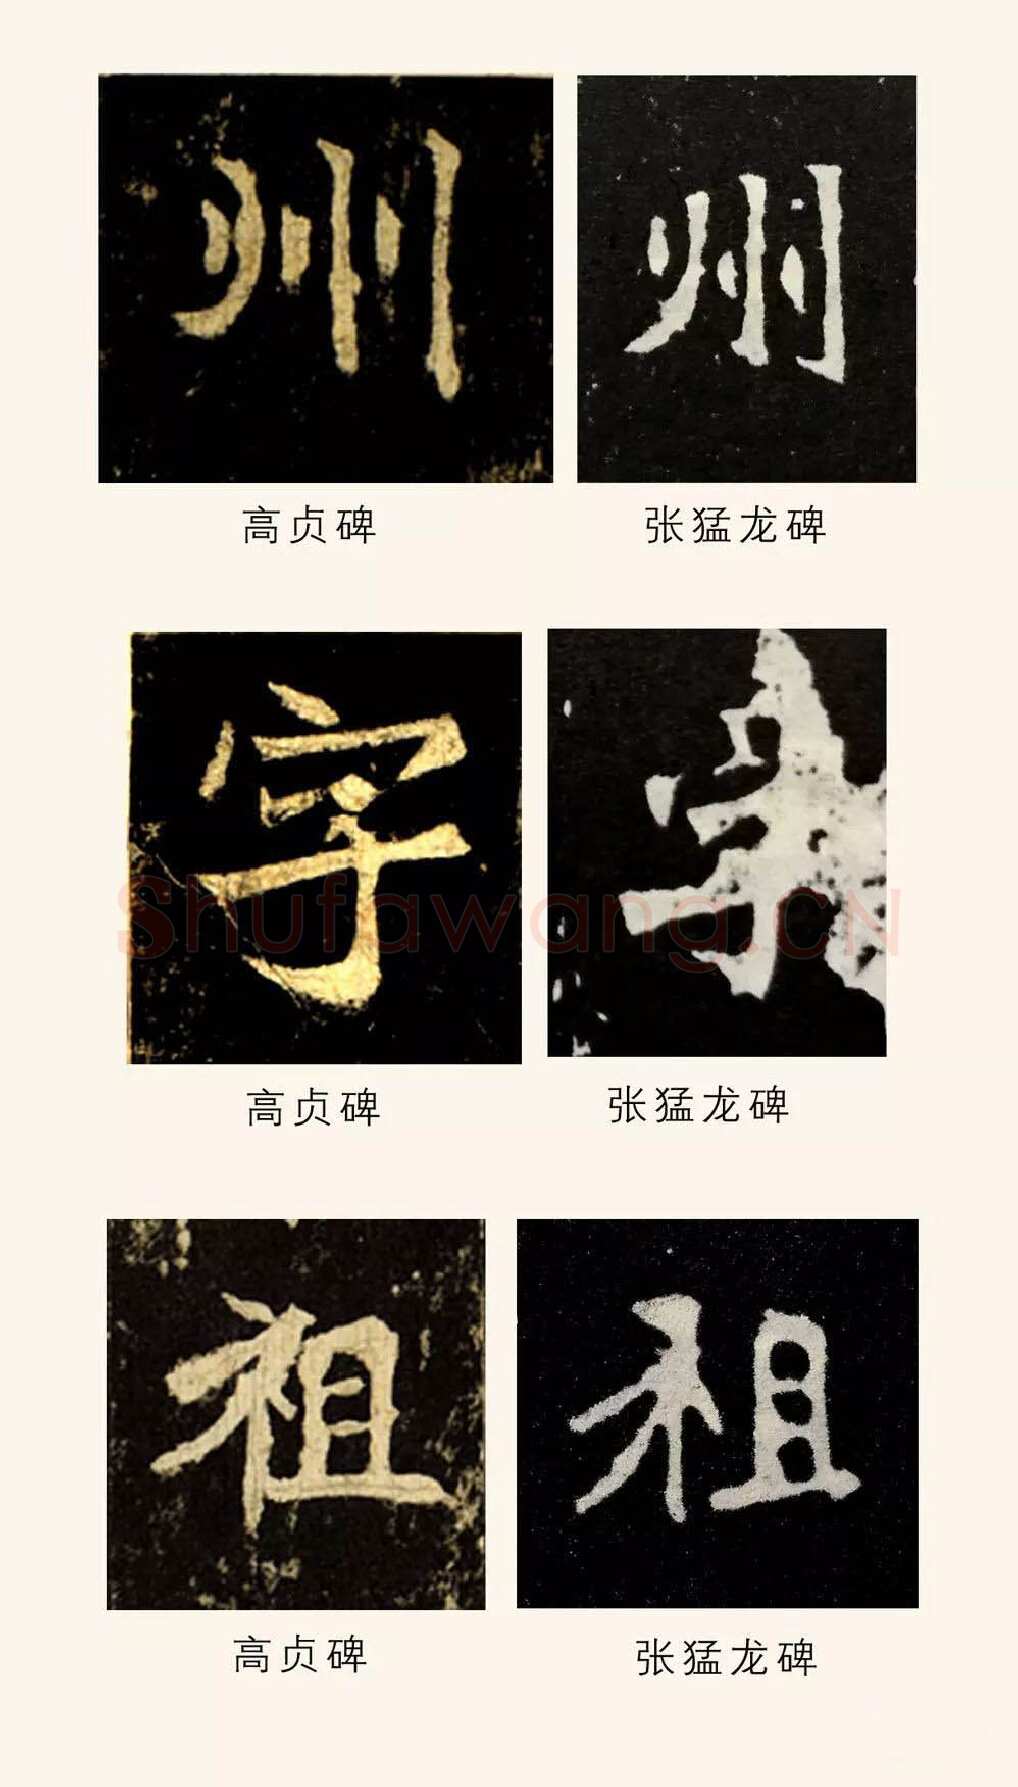 州 州
高贞碑 张猛龙碑
字 字
Shufawang.CN
高贞碑 张猛龙碑
祖 祖
高贞碑 张猛龙碑